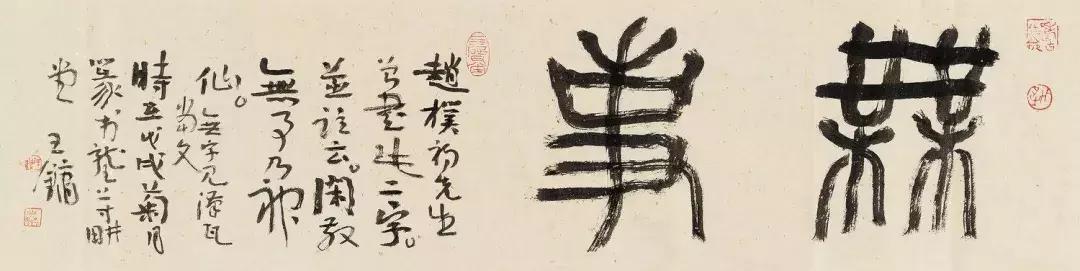 無事
趙樸初先生
曾書此二字。
並註云。閑散
無事乃神
仙。無字見漢瓦
當文
時在戊戌菊月
篆书
王鏞